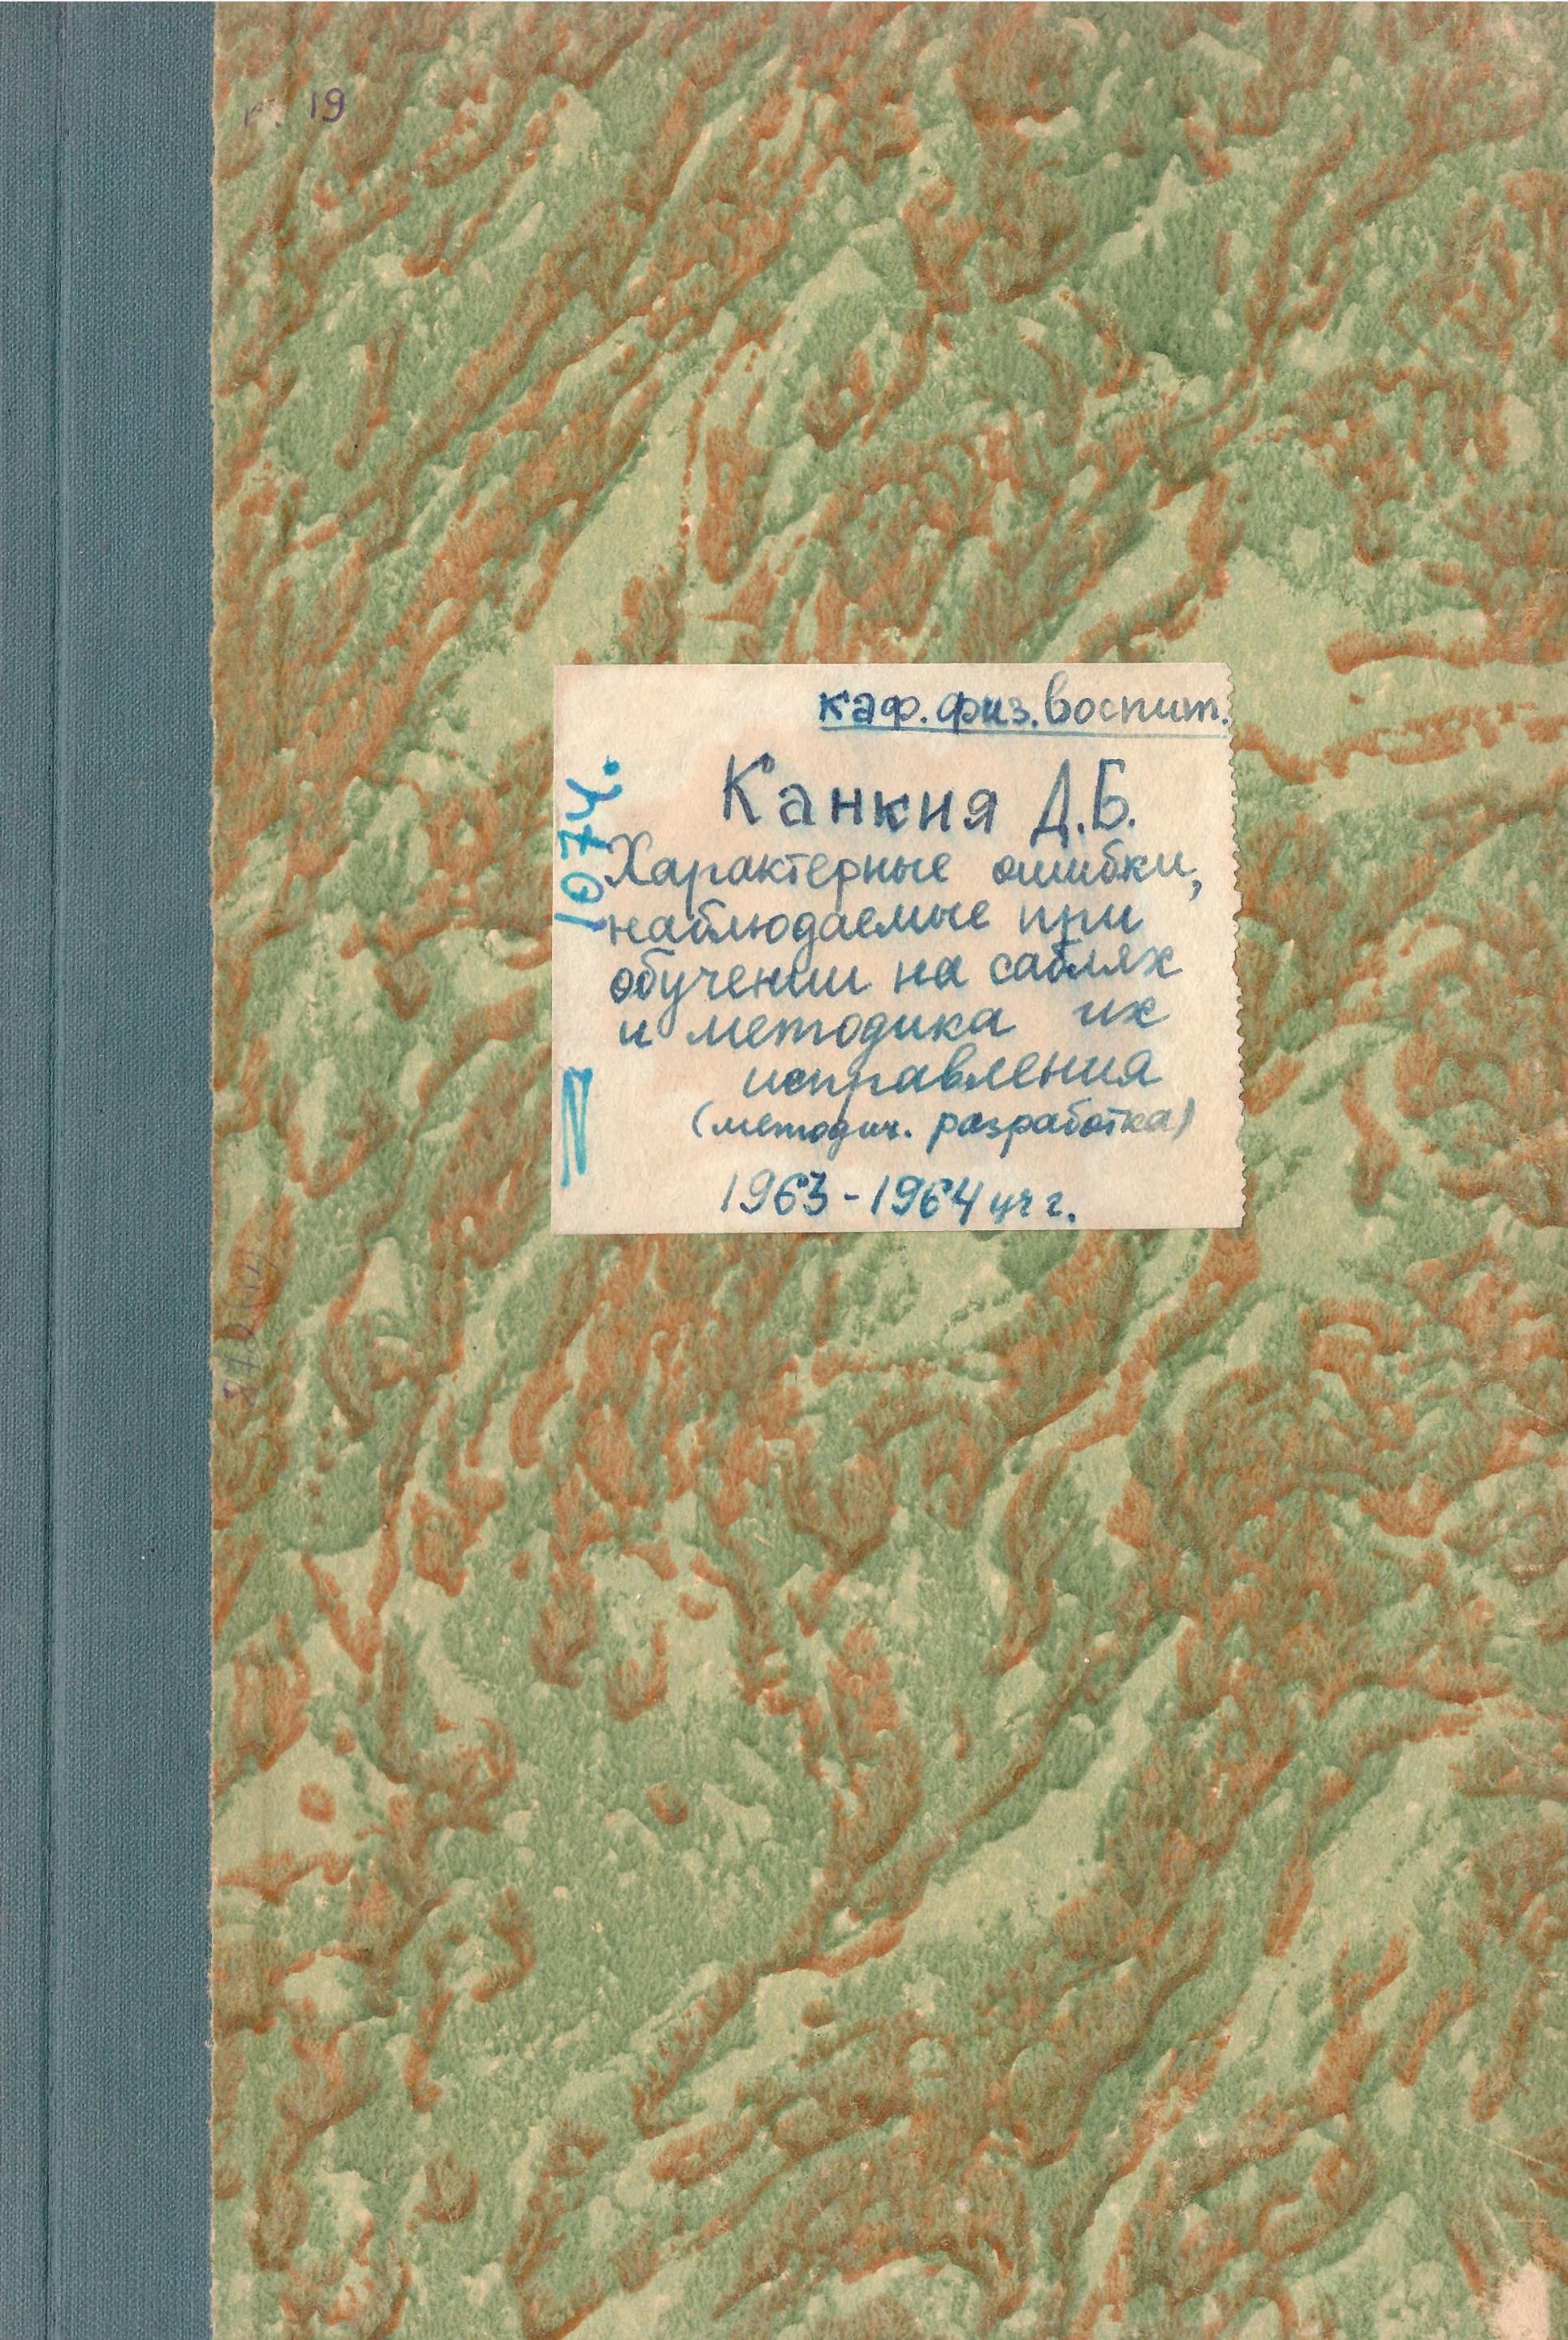 19
каф. физ. воспит.
1074.
Канкия Д.Б.
Характерные ошибки,
наблюдаемые при
обучении на саблях
и методика их
исправления
(методич. разработка)
1963-1964 уч г.